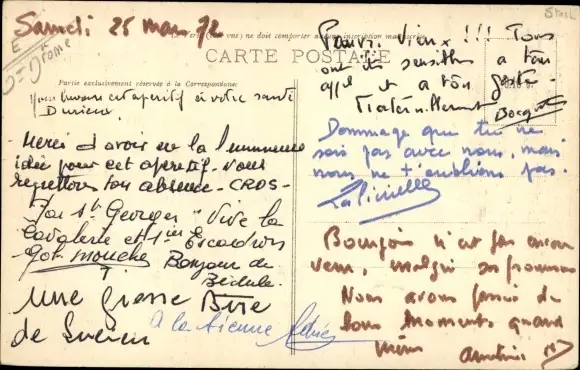 Samedi 25 mars 72
E
Drôme
CARTE POSTALE
Partie exclusivement réservée à la Correspondance
ne doit comporter aucune inscription manuscrite
Nous buvons cet apéritif à votre santé
Durieux
Merci d'avoir eu la lumineuse
idée pour cet apéritif. Vous
regrettons ton absence - CROS -
Par St Georges "Vive la
Cavalerie et 1er Escadron
Got mouche Bonjour de
Bidule
Une Grosse Bise
de Suceur
à la tienne
Pauvre Vieux !!! Tous
ont été sensibles à ton
appel et à ton geste -
Fraternellement
Bocquet
Dommage que tu ne
sois pas avec nous, mais
nous ne t'oublions pas.
Bourgoin n'est pas encore
venu, malgré sa promesse
Nous avons passé de
bons moments quand
même